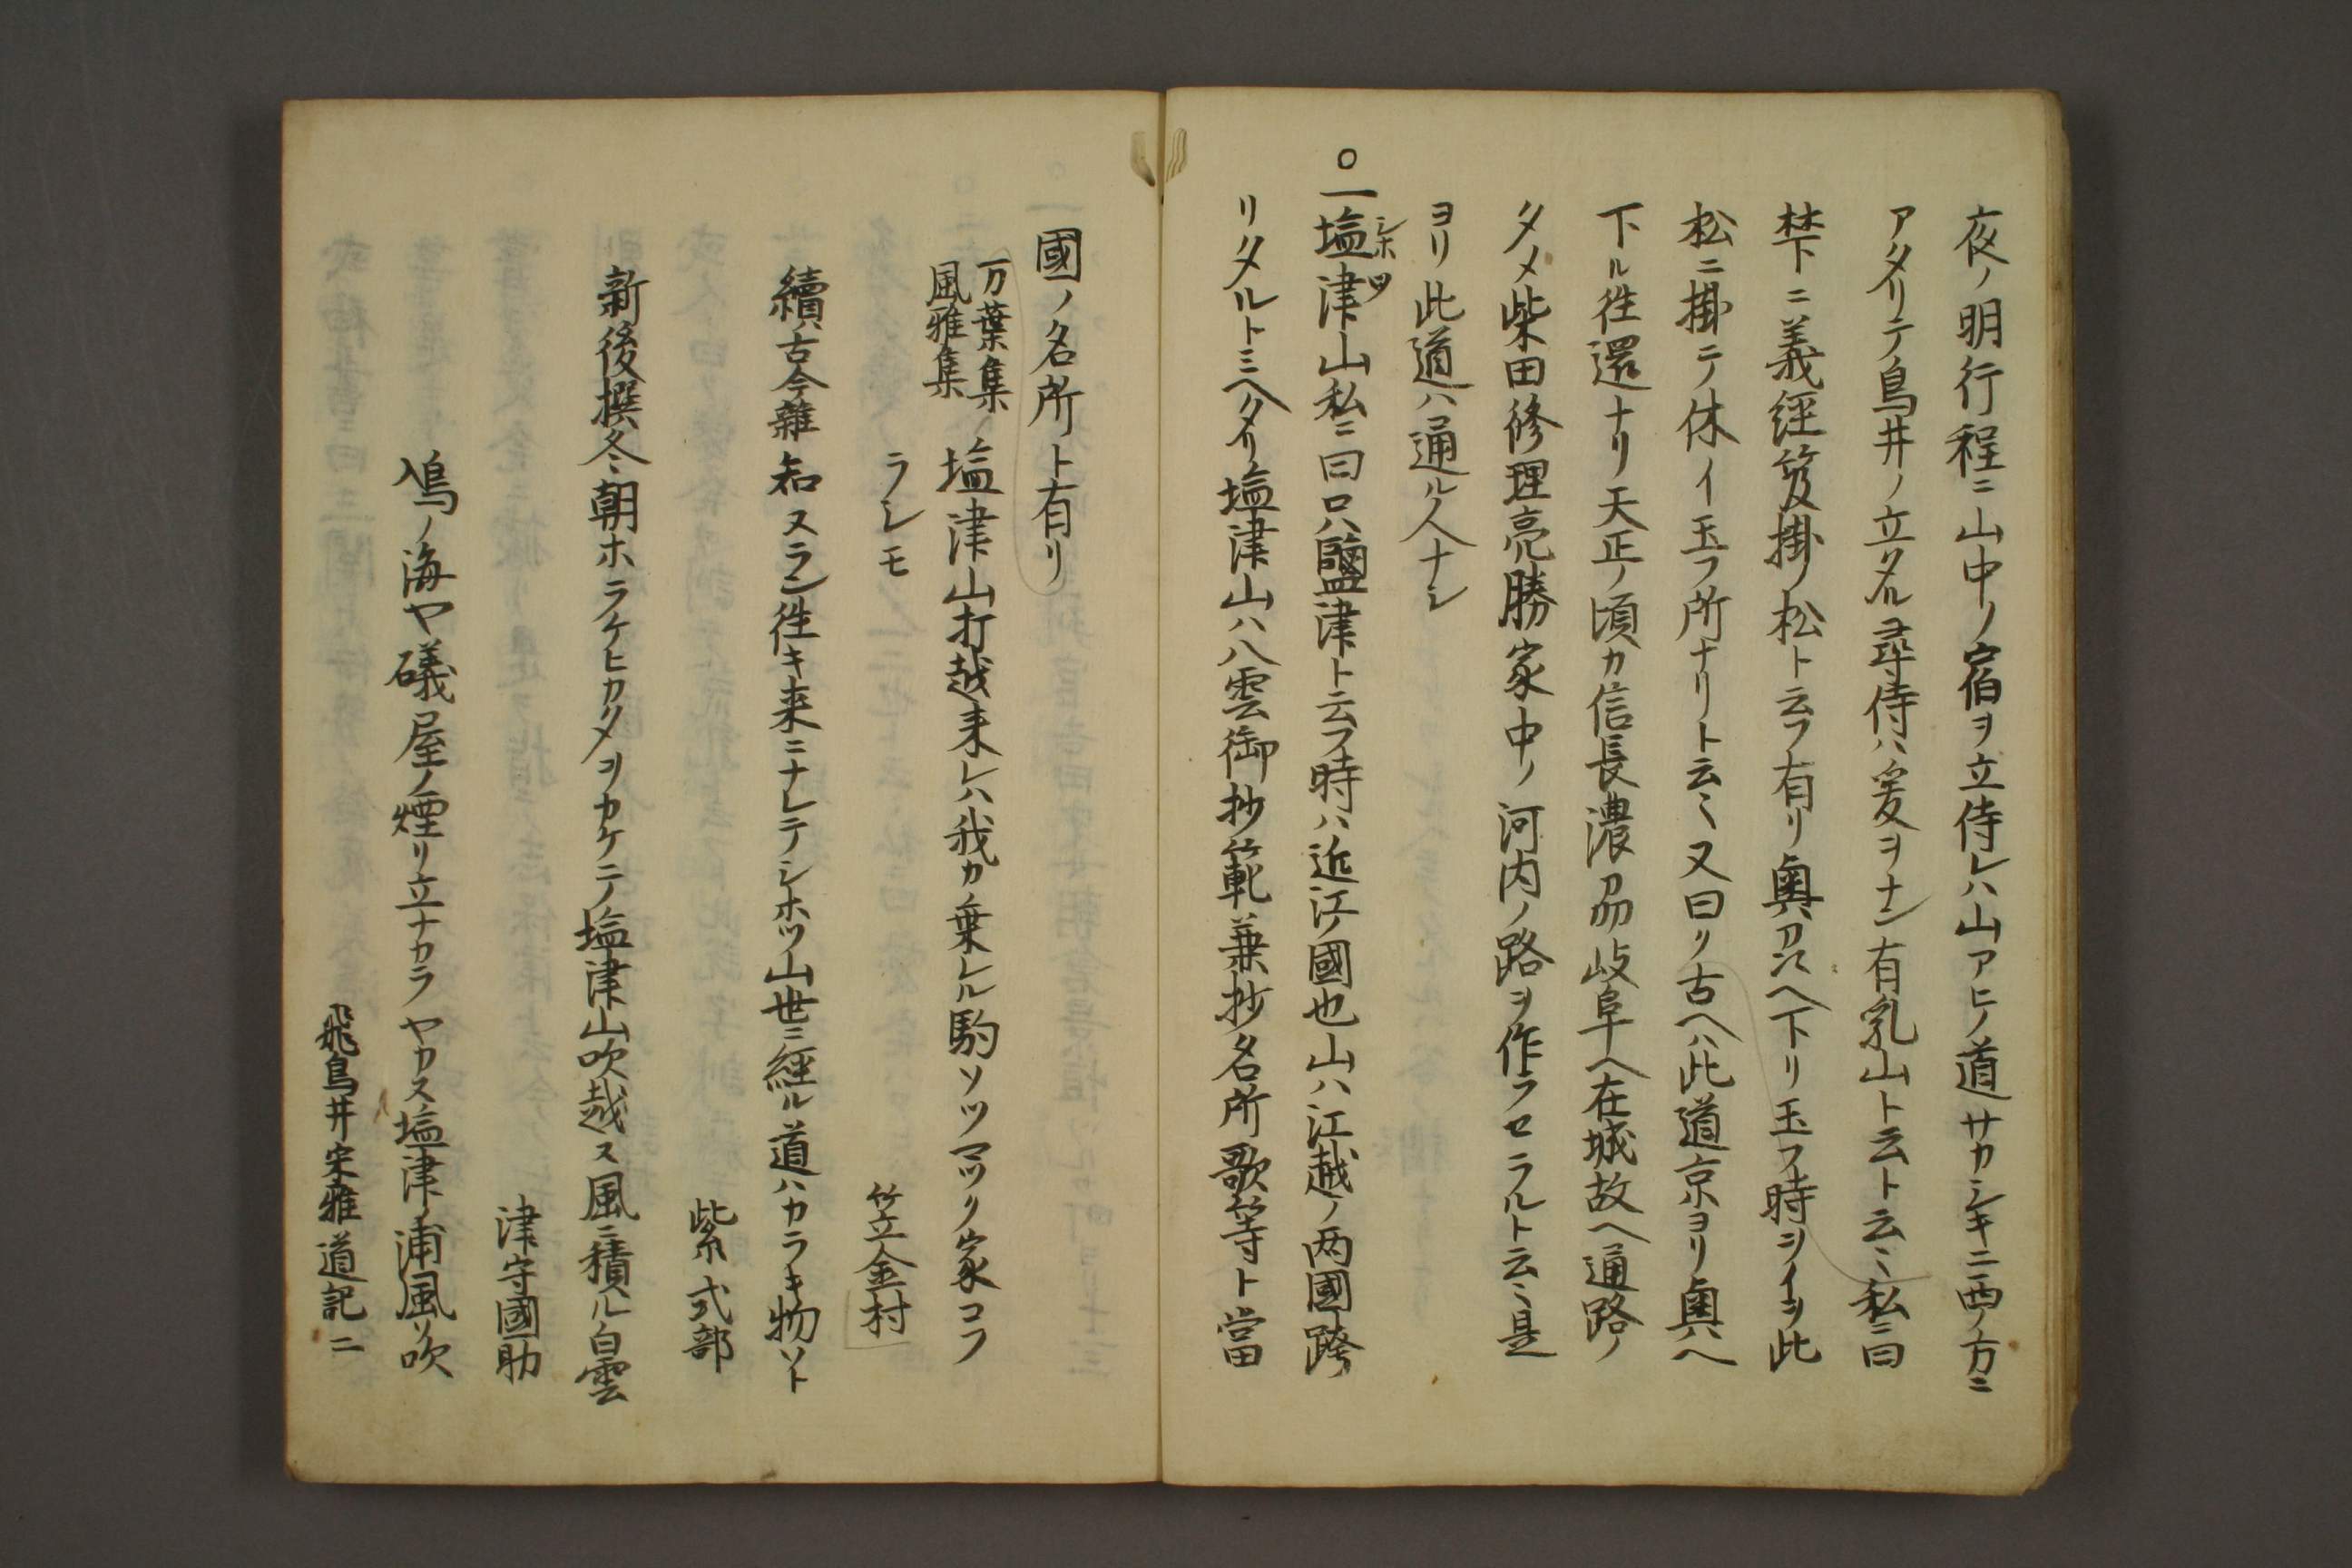 夜ノ明行程ニ山中ノ宿ヲ立侍レハ山アヒノ道サカシキニ西ノ方ニ
アタリテ鳥井ノ立タルヲ尋侍ハ爰ヲナン有乳山ト云ト云〻私ニ曰
禁下ニ義經笈掛ノ松ト云フ有リ奥刕ヘ下リ玉フ時シイヲ此
松ニ掛テ休イ玉フ所ナリト云〻又曰リ古ヘハ此道京ヨリ奥ヘ
下ル往還ナリ天正ノ頃カ信長濃刕岐阜ヘ在城故ヘ通路ノ
タメ柴田修理亮勝家中ノ河内ノ路ヲ作ラセラルト云〻是
ヨリ此道ハ通ル人ナシ
○一塩津山私ニ曰只鹽津ト云フ時ハ近江ノ國也山ハ江越ノ两國跨
シホツ
リタルトミヘタリ塩津山ハ八雲御抄範兼抄名所歌等ト當
國ノ名所ト有リ
万葉集
風雅集
塩津山打越来レハ我カ乗レル駒ソツマツク家コフ
ラシモ
笠金村
續古今雜 知ヌラン往キ来ニナレテシホツ山世ニ經ル道ハカラキ物ソト
紫式部
新後撰冬 朝ホラケヒカタヲカケテ塩津山吹越ス風ニ積ル白雲
津守國助
鳰ノ海ヤ礒屋ノ煙リ立ナカラヤカヌ塩津ノ浦風ソ吹
飛鳥井宋雅道記ニ